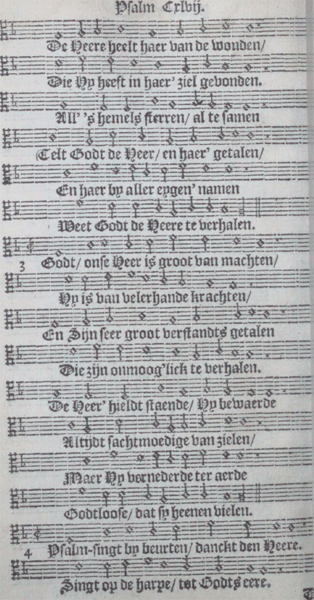 Psalm Cxlvij.
De Heere heelt haer van de wonden/
Die Hy heeft in haer' ziel gevonden.
All' 's hemels sterren/ al te samen
Telt Godt de Heer/ en haer' getalen/
En haer by aller eygen' namen
Weet Godt de Heere te verhalen.
3 Godt/ onse Heer is groot van machten/
Hy is van velerhande krachten/
En Zijn seer groot verstandts getalen
Die zijn onmoog'lick te verhalen.
De Heer' hieldt staende/ Hy bewaerde
Altydt sachtmoedige van zielen/
Maer Hy vernederde ter aerde
Godtloose/ dat sy heenen vielen.
4 Psalm-singt by beurten/ danckt den Heere.
Singt op de harpe/ tot Godts eere.